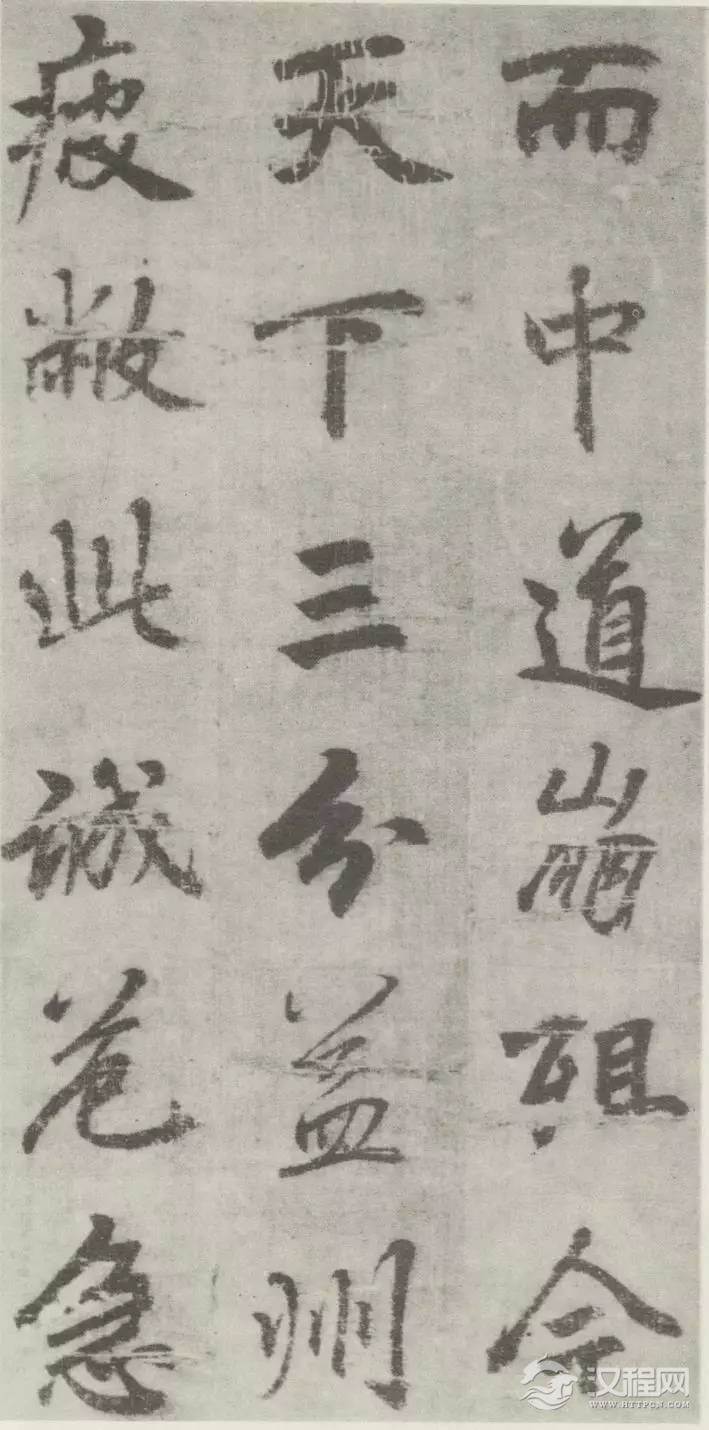 而中道崩殂今
天下三分益州
疲敝此誠危急
汉程网
WWW.HTTPCN.COM